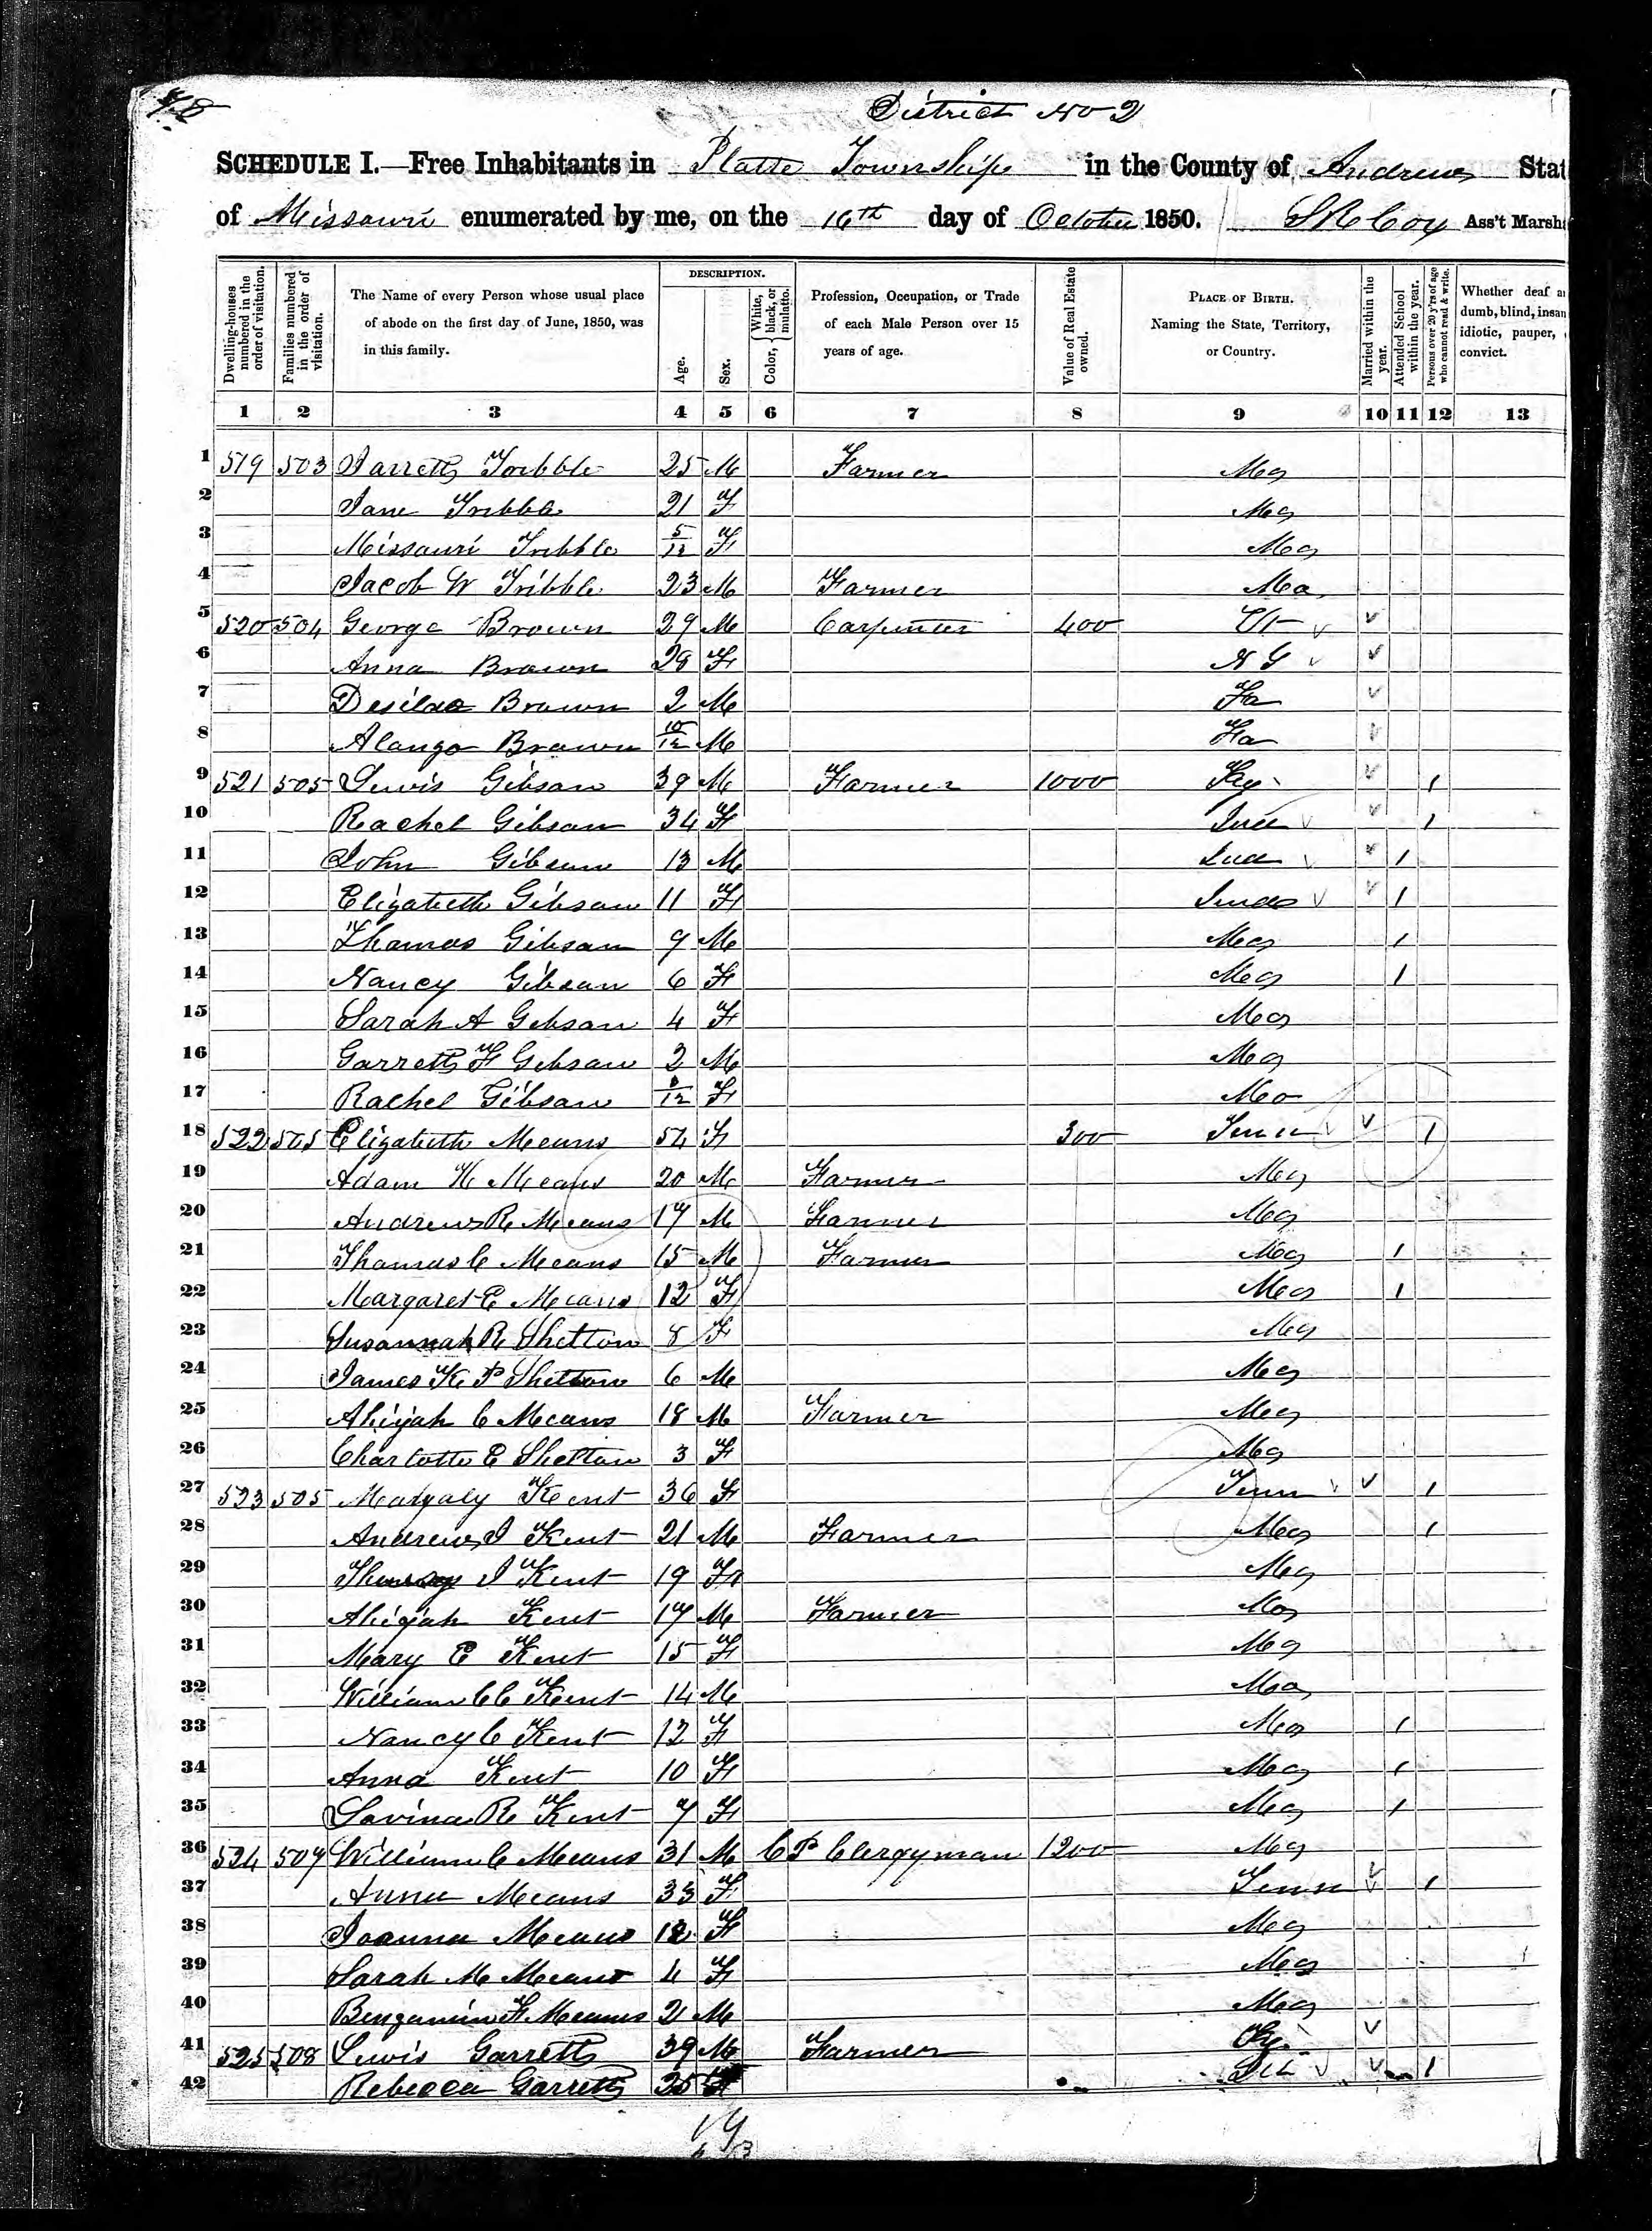 78
District No 2
SCHEDULE I.—Free Inhabitants in Platte Township in the County of Andrew Stat
of Missouri enumerated by me, on the 16th day of October 1850. Ass't Marsh
Dwelling-houses numbered in the order of visitation.
Families numbered in the order of visitation.
The Name of every Person whose usual place of abode on the first day of June, 1850, was in this family.
DESCRIPTION.
Age.
Sex.
Color, White, black, or mulatto.
Profession, Occupation, or Trade of each Male Person over 15 years of age.
Value of Real Estate owned.
PLACE OF BIRTH. Naming the State, Territory, or Country.
Married within the year.
Attended School within the year.
Persons over 20 y'rs of age who cannot read & write.
Whether deaf a dumb, blind, insan idiotic, pauper, convict.
1 2 3 4 5 6 7 8 9 10 11 12 13
1 519 503 Jarrett Tribble 25 M Farmer Mo
2 Jane Tribble 21 F Mo
3 Missouri Tribble 5/12 F Mo
4 Jacob W Tribble 23 M Farmer Mo
5 520 504 George Brown 29 M Carpenter 400
6 Anna Brown 28 F
7 Brown 2 M Ia
8 Alonzo Brown 10/12 M Ia
9 521 505 Lewis Gibson 39 M Farmer 1000 Ky 1
10 Rachel Gibson 34 F Ind 1
11 John Gibson 13 M Ind 1
12 Elizabeth Gibson 11 F Inda 1
13 Thomas Gibson 9 M Mo 1
14 Nancy Gibson 6 F Mo 1
15 Sarah A Gibson 4 F Mo
16 Garrett F Gibson 2 M Mo
17 Rachel Gibson /12 F Mo
18 522 505 Elizabeth Means 54 F 300 Tenn 1
19 Adam K Means 20 M Farmer Mo
20 Andrew R Means 17 M Farmer Mo
21 Thomas C Means 15 M Farmer Mo 1
22 Margaret E Means 12 F Mo 1
23 Susannah R Shelton 8 F Mo
24 James K P Shelton 6 M Mo
25 Abijah C Means 18 M Farmer Mo
26 Charlotte E Shelton 3 F Mo
27 523 505 Kent 36 F Tenn 1
28 Andrew J Kent 21 M Farmer Mo 1
29 J Kent 19 F Mo
30 Abijah Kent 17 M Farmer Mo
31 Mary E Kent 15 F Mo
32 William C C Kent 14 M Mo
33 Nancy C Kent 12 F Mo 1
34 Anna Kent 10 F Mo 1
35 Lovina R Kent 7 F Mo 1
36 524 507 William C Means 31 M C P Clergyman 1200 Mo
37 Anna Means 33 F Tenn 1
38 Joanna Means F Mo
39 Sarah M Means 4 F Mo
40 Benjamin F Means 2 M Mo
41 525 508 Lewis Garrett 39 M Farmer Ky
42 Rebecca Garrett 35 F 1